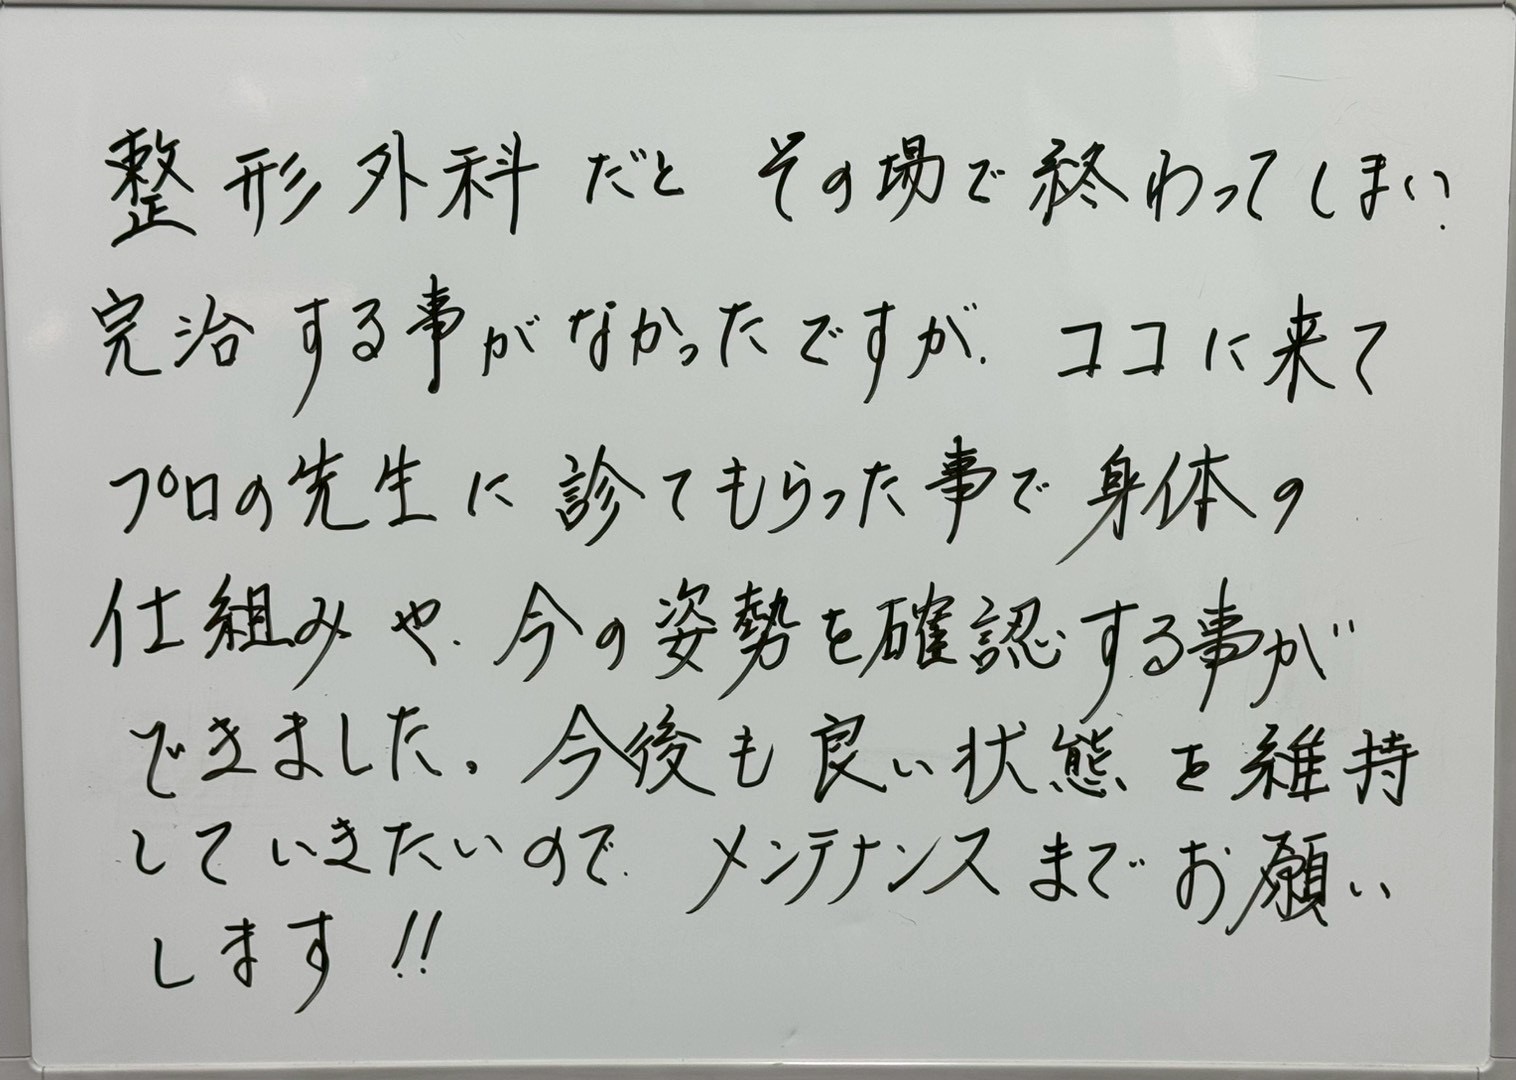 整形外科だと その場で終わってしまい、
完治する事がなかったですが、ココに来て
プロの先生に診てもらった事で身体の
仕組みや、今の姿勢を確認する事が
できました。今後も良い状態を維持
していきたいので、メンテナンスまでお願い
します!!